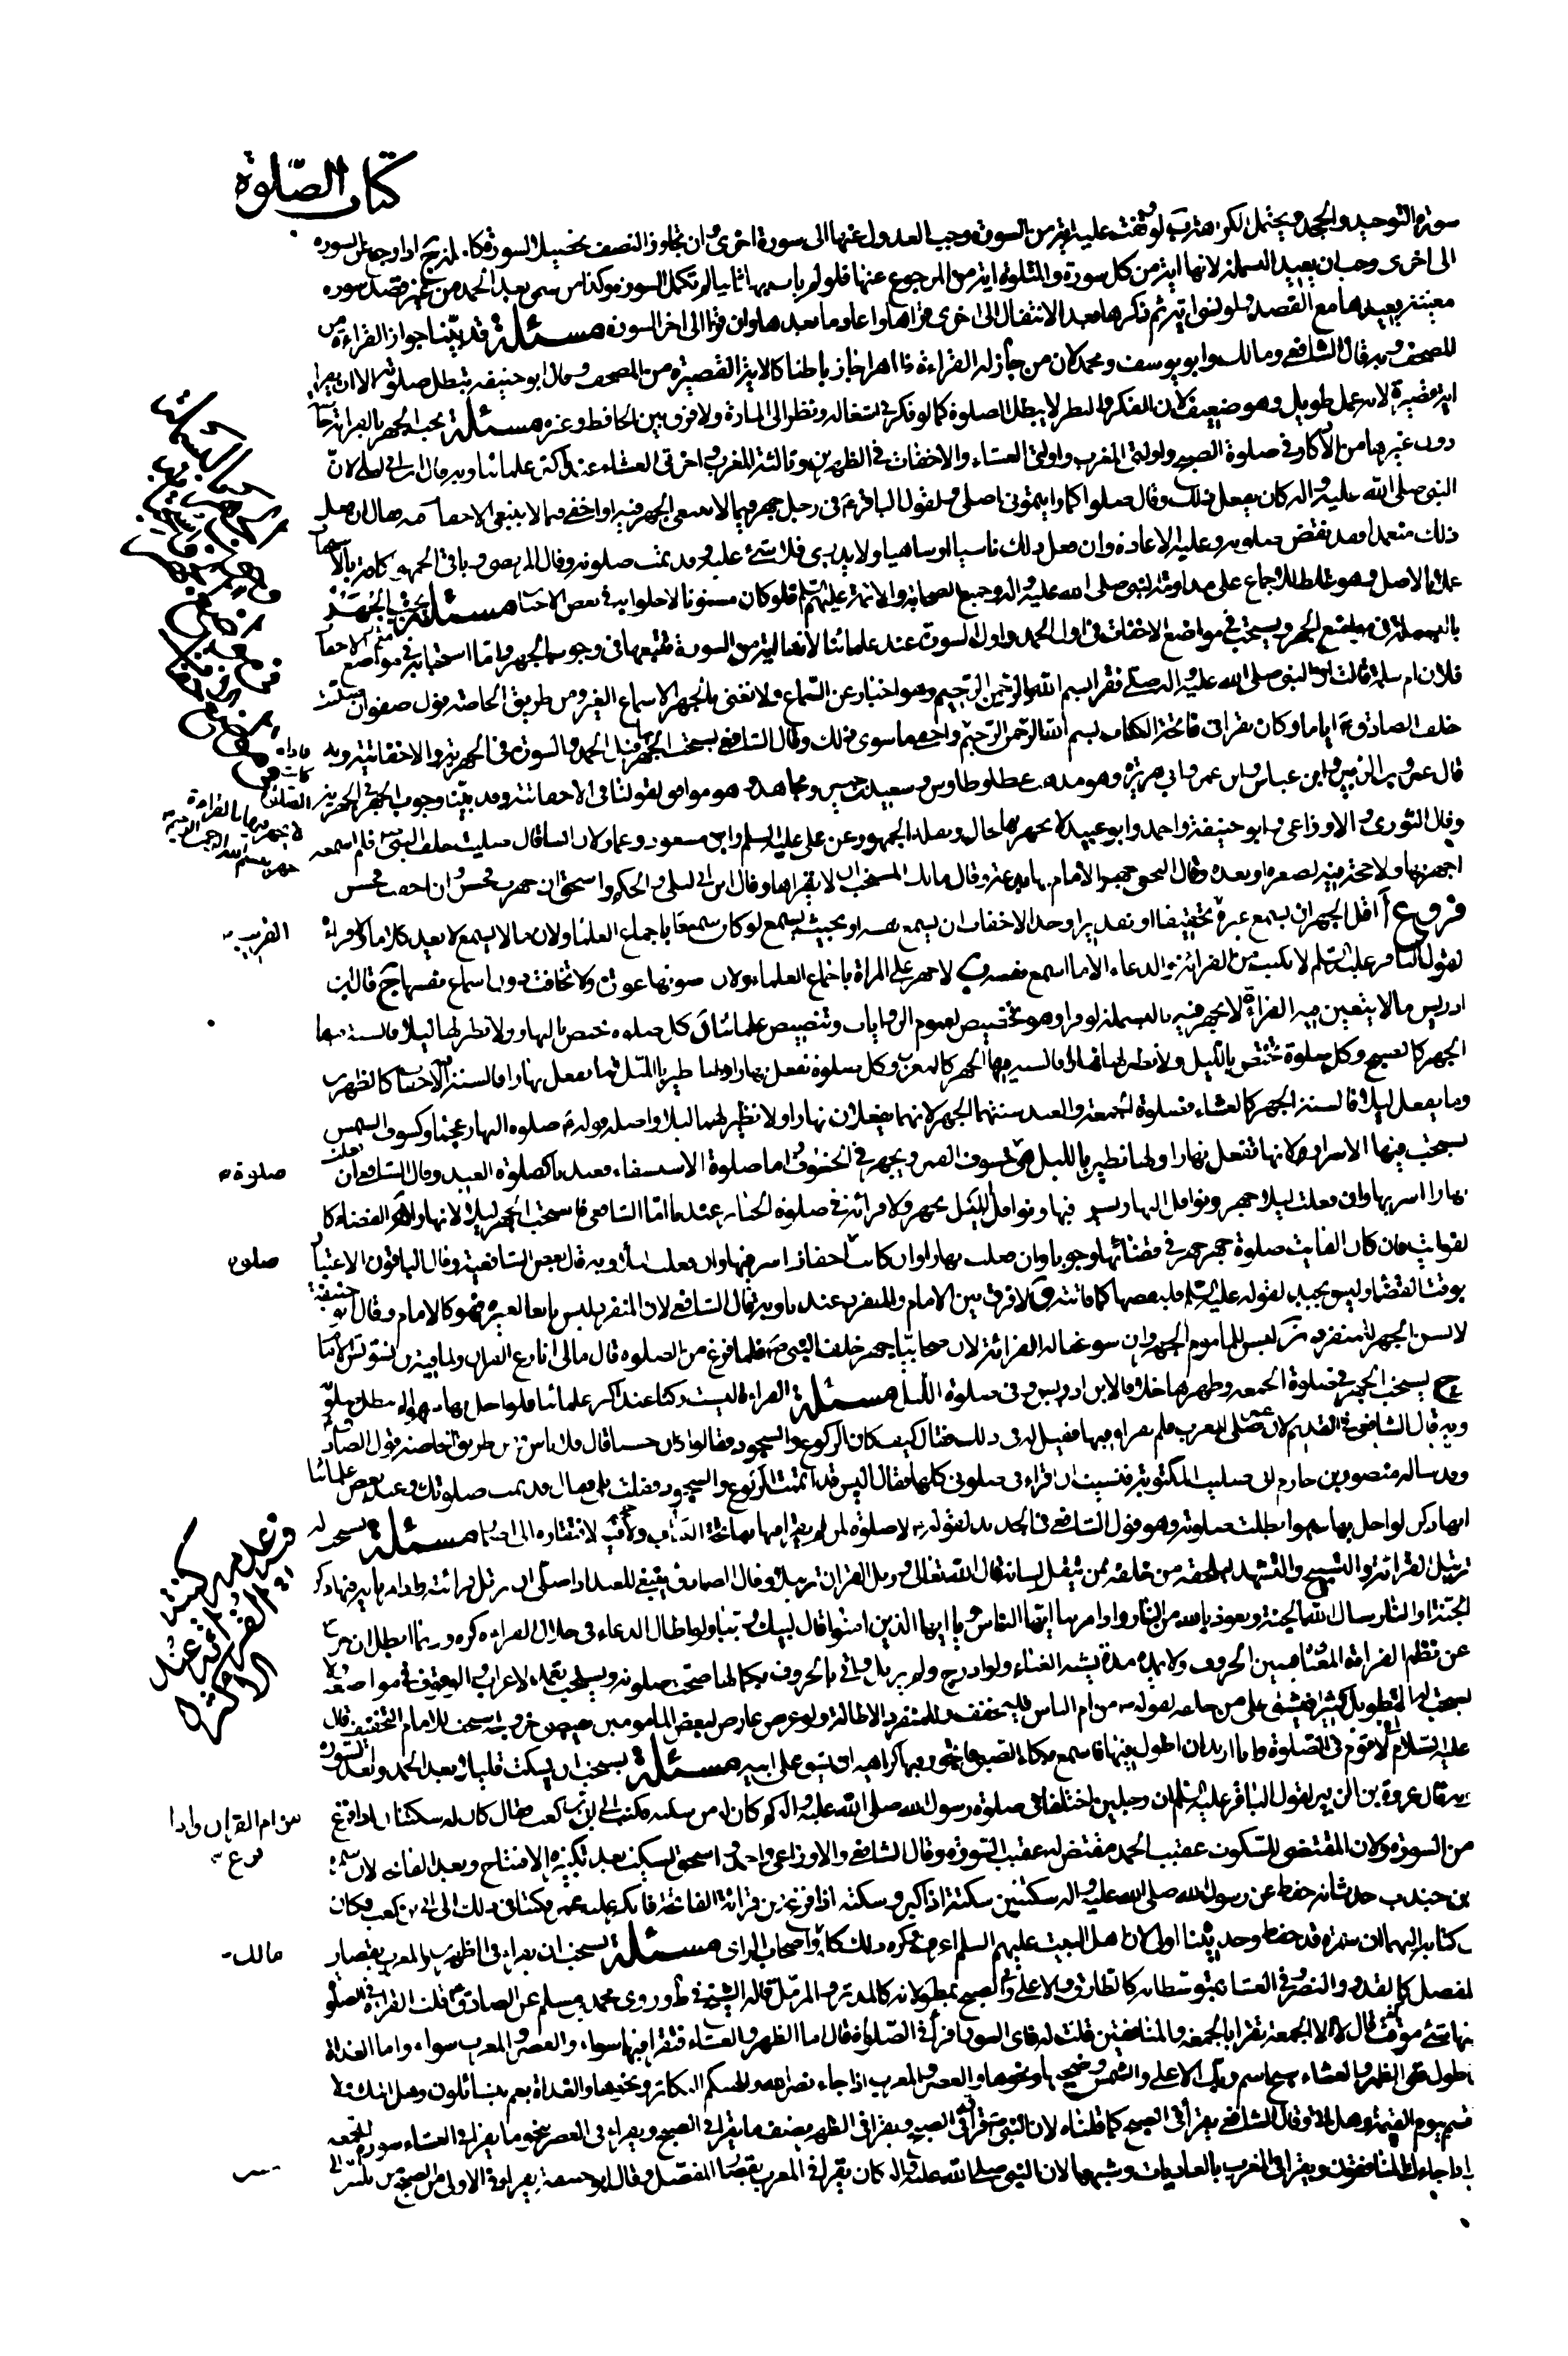 كتاب الصلوة
سورة التوحيد والجحد ويحتمل الكراهة ب لو وقفت عليه اية من السورة وجب العدول عنها الى سورة اخرى وان تجاوز النصف تحصيلا لسورة كاملة ج اذا رجع من السورة
الى اخرى وجب ان يعيد البسملة لانها اية من كل سورة والمتلوة اية من المرجوع عنها فلو لم يأت بها ثانيا لم تكمل السورة وكذا من سمى بعد الحمد من غير قصد سورة
معينة يعيدها مع القصد ولو نسى اية ثم ذكرها بعد الانتقال الى اخرى قراها واعاد ما بعدها وان قرا الى اخر السورة مسئلة قد بينا جواز القراءة من
المصحف وبه قال الشافعي ومالك وابو يوسف ومحمد لان من جاز له القراءة ظاهرا جاز باطنا كالاية القصيرة من المصحف وقال ابو حنيفة تبطل صلوته الا ان يقرا
اية قصيرة لانه عمل طويل وهو ضعيف لان الفكر والنظر لا يبطل الصلوة كما لو تفكر في اشغاله ونظر الى المارة ولا فرق بين الحافظ وغيره مسئلة يجب الجهر بالقراءة خاصة
دون غيرها من الاذكار في صلوة الصبح واولتي المغرب واولتي العشاء والاخفات في الظهرين وثالثة المغرب واخرتي العشاء عند اكثر علمائنا وبه قال ابن ابي ليلى لان
النبي صلى الله عليه واله كان يفعل ذلك وقال صلوا كما رايتموني اصلي ولقول الباقر ع في رجل جهر فيما لا ينبغي الجهر فيه او اخفى فيما لا ينبغي الاخفات فيه فقال ان فعل
ذلك متعمدا فقد نقض صلوته وعليه الاعادة وان فعل ذلك ناسيا او ساهيا ولا يدري فلا شئ عليه وقد تمت صلوته وقال المرتضى وباقي الجمهور كافة بالاستحباب
عملا بالاصل وهو غلط للاجماع على مداومة النبي صلى الله عليه واله وجميع الصحابة والائمة عليهم السلم فلو كان مسنونا لاخلوا به في بعض الاحيان مسئلة يجب الجهر
بالبسملة في مواضع الجهر ويستحب في مواضع الاخفات في اول الحمد واول السورة عند علمائنا لانها اية من السورة تتبعها في وجوب الجهر واما استحبابه في مواضع الاخفات
فلان ام سلمة قالت ان النبي صلى الله عليه واله صلى فقرا بسم الله الرحمن الرحيم وهو اخبار عن السماع ولا نعني بالجهر الا اسماع الغير ومن طريق الخاصة قول صفوان صليت
خلف الصادق ع اياما وكان يقرا في فاتحة الكتاب بسم الله الرحمن الرحيم واخفى ما سوى ذلك وقال الشافعي يستحب الجهر بها قبل الحمد والسورة في الجهرية والاخفاتية وبه
قال عمر وابن الزبير وابن عباس وابن عمر وابي هريرة وهو مذهب عطا وطاوس وسعيد بن جبير ومجاهد وهو موافق لقولنا في الاخفاتية وقد بينا وجوب الجهر في الجهرية
وقال الثوري والاوزاعي وابو حنيفة واحمد وابو عبيد لا يجهر بها بحال ونقله الجمهور عن علي عليه السلم وابن مسعود وعمار لان انسا قال صليت خلف النبي فلم اسمعه
يجهر بها ولا حجة فيه لصغره او بعده وقال النخعي جهر الامام بها بدعة وقال مالك المستحب ان لا يقراها وقال ابن ابي ليلى والحكم واسحق ان جهرت فحسن وان اخفت فحسن
فروع ا اقل الجهر ان يسمع غيره تحقيقا او تقديرا وحد الاخفات ان يسمع نفسه او بحيث يسمع لو كان سميعا باجماع العلماء ولان ما لا يسمع لا يعد كلاما ولا قراءة
لقول الباقر عليه السلم لا يكتب من القرائة والدعاء الا ما اسمع نفسه ب لا جهر على المراة باجماع العلماء ولان صوتها عورة ولا تخافت دون اسماع نفسها ج قال ابن
ادريس ما لا يتعين فيه القراءة لا يجهر فيه بالبسملة لو قرا وهو تخصيص لعموم الروايات وتنصيص علمائنا د كل صلوة تختص بالنهار ولا نظير لها ليلا فالسنة فيها
الجهر كالصبح وكل صلوة تختص بالليل ولا نظير لها نهارا فالسنة فيها الجهر كالمغرب وكل صلوة تفعل نهارا ولها نظير بالليل فما يفعل نهارا فالسنة الاخفات كالظهرين
وما يفعل ليلا فالسنة الجهر كالعشاء فصلوة الجمعة والعيد سنتهما الجهر لانهما يفعلان نهارا ولا نظير لهما ليلا واصله قوله ع صلوة النهار عجماء وكسوف الشمس
يستحب فيها الاسرار لانها تفعل نهارا ولها نظير بالليل هي خسوف القمر ويجهر في الخسوف واما صلوة الاستسقاء فعندنا كصلوة العيد وقال الشافعي ان فعلت
نهارا اسر بها وان فعلت ليلا جهر ونوافل النهار يسر فيها ونوافل الليل يجهر ولا قرائة في صلوة الجنازة عندنا اما الشافعي فاستحب الجهر ليلا لا نهارا ه القضاء كا
لفوايت فان كان الفايت صلوة جهر جهر في قضائها وجوبا وان صليت نهارا وان كانت اخفاتا اسر فيها وان فعلت ليلا وبه قال بعض الشافعية وقال الباقون الاعتبار
بوقت القضاء وليس بجيد لقوله عليه السلم فليقضها كما فاتته و لا فرق بين الامام والمنفرد عندنا وبه قال الشافعي لان المنفرد ليس تابعا لغيره فهو كالامام وقال ابو حنيفة
لا يسن الجهر للمنفرد ز ليس للماموم الجهر وان سوغنا له القرائة لان صحابيا جهر خلف النبي ص فلما فرغ من الصلوة قال مالي انازع القران ولما فيه من التشويش على الامام
ح يستحب الجهر في صلوة الجمعة وظهرها خلافا لابن ادريس وفي صلوة الليل مسئلة القراءة ليست ركنا عند اكثر علمائنا فلو اخل بها سهوا لم تبطل صلوته
وبه قال الشافعي في القديم لان عمر صلى المغرب فلم يقرا فيها فقيل له في ذلك فقال كيف كان الركوع والسجود فقالوا كان حسنا قال فلا باس ومن طريق الخاصة قول الصادق ع
وقد ساله منصور بن حازم اني صليت المكتوبة فنسيت ان اقراء في صلوتي كلها فقال اليس قد اتممت الركوع والسجود فقلت بلى فقال قد تمت صلوتك وعند بعض علمائنا
انها ركن لو اخل بها سهوا بطلت صلوته وهو قول الشافعي في الجديد لقوله ع لا صلوة لمن لم يقرا فيها بفاتحة الكتاب ولا حجة فيه لافتقاره الى اضمار مسئلة يستحب له
ترتيل القرائة والتسبيح والتشهد ليلحقه من خلفه ممن يثقل لسانه قال الله تعالى ورتل القران ترتيلا وقال الصادق ع ينبغي للعبد اذا صلى ان يرتل قرائته واذا مر باية فيها ذكر
الجنة او النار سال الله الجنة وتعوذ بالله من النار واذا مر بيا ايها الناس ويا ايها الذين امنوا قال لبيك ربنا ولو اطال الدعاء في خلال القراءة كره وربما ابطل ان خرج
عن نظم القراءة المعتاد ويبين الحروف ولا يمده مدا يشبه الغناء ولو ادرج ولم يرتل واتى بالحروف بكمالها صحت صلوته ويستحب تعمد الاعراب والوقوف في مواضعه ولا
يستحب له التطويل كثيرا فيشق على من خلفه لقوله ع من ام الناس فليخفف وللمنفرد الاطالة ولو عرض عارض لبعض المامومين يقتضي خروجه استحب للامام التخفيف قال
عليه السلام اني لاقوم في الصلوة وانا اريد ان اطول فيها فاسمع بكاء الصبي فاتجوز فيها كراهية ان يشق على ابيه مسئلة يستحب ان يسكت قليلا بعد الحمد وبعد السورة
وبه قال عروة بن الزبير لقول الباقر عليه السلم ان رجلين اختلفا في صلوة رسول الله صلى الله عليه واله كم كان له من سكتة فكتبا الى ابي بن كعب فقال كان له سكتتان اذا فرغ
من السورة ولان المقتضى للسكون عقيب الحمد مقتض له عقيب السورة وقال الشافعي والاوزاعي واحمد واسحق السكت بعد تكبيرة الافتتاح وبعد الفاتحة لان سمرة
بن جندب حدث انه حفظ عن رسول الله صلى الله عليه واله سكتتين سكتة اذا كبر وسكتة اذا فرغ من قرائة الفاتحة فانكر عليه عمر فكتبا في ذلك الى ابي بن كعب فكان
في كتابه اليهما ان سمرة قد حفظ وحديثنا اولى لان اهل البيت عليهم السلم اعرف وكره ذلك مالك واصحاب الراى مسئلة يستحب ان يقراء في الظهرين والمغرب بقصار
المفصل كالقدر والنصر وفي العشاء بمتوسطاته كالطارق والاعلى وفي الصبح بمطولاته كالمدثر والمزمل قاله الشيخ في ط وروى محمد بن مسلم عن الصادق ع قلت القراءة في الصلوة
فيها شئ موقت قال لا الا الجمعة تقرا بالجمعة والمنافقين قلت له فاي السور اقرأ في الصلوات فقال اما الظهر والعشاء فتقرا فيهما سواء والعصر والمغرب سواء واما الغداة
فاطول ففي الظهر والعشاء سبح اسم ربك الاعلى والشمس وضحيها ونحوها والعصر والمغرب اذا جاء نصر الله والهيكم التكاثر ونحوها والغداة بعم يتسائلون وهل اتيك ولا
اقسم بيوم القيمة وهل اتى وقال الشافعي يقرأ في الصبح كما قلناه لان النبي ص قرا في الصبح ويقرا في الظهر بنصف ما يقرا في الصبح ويقراء في العصر نحو ما يقرا في العشاء سورة الجمعة
واذا جاءك المنافقون ويقرا في المغرب بالعاديات وشبهها لان النبي صلى الله عليه واله كان يقرا في المغرب بقصار المفصل وقال ابو حنيفة يقراء في الاولى من الصبح من ثلثين الى
القريب
صلوة
صلوة
من ام القران واذا
فرغ
مالك